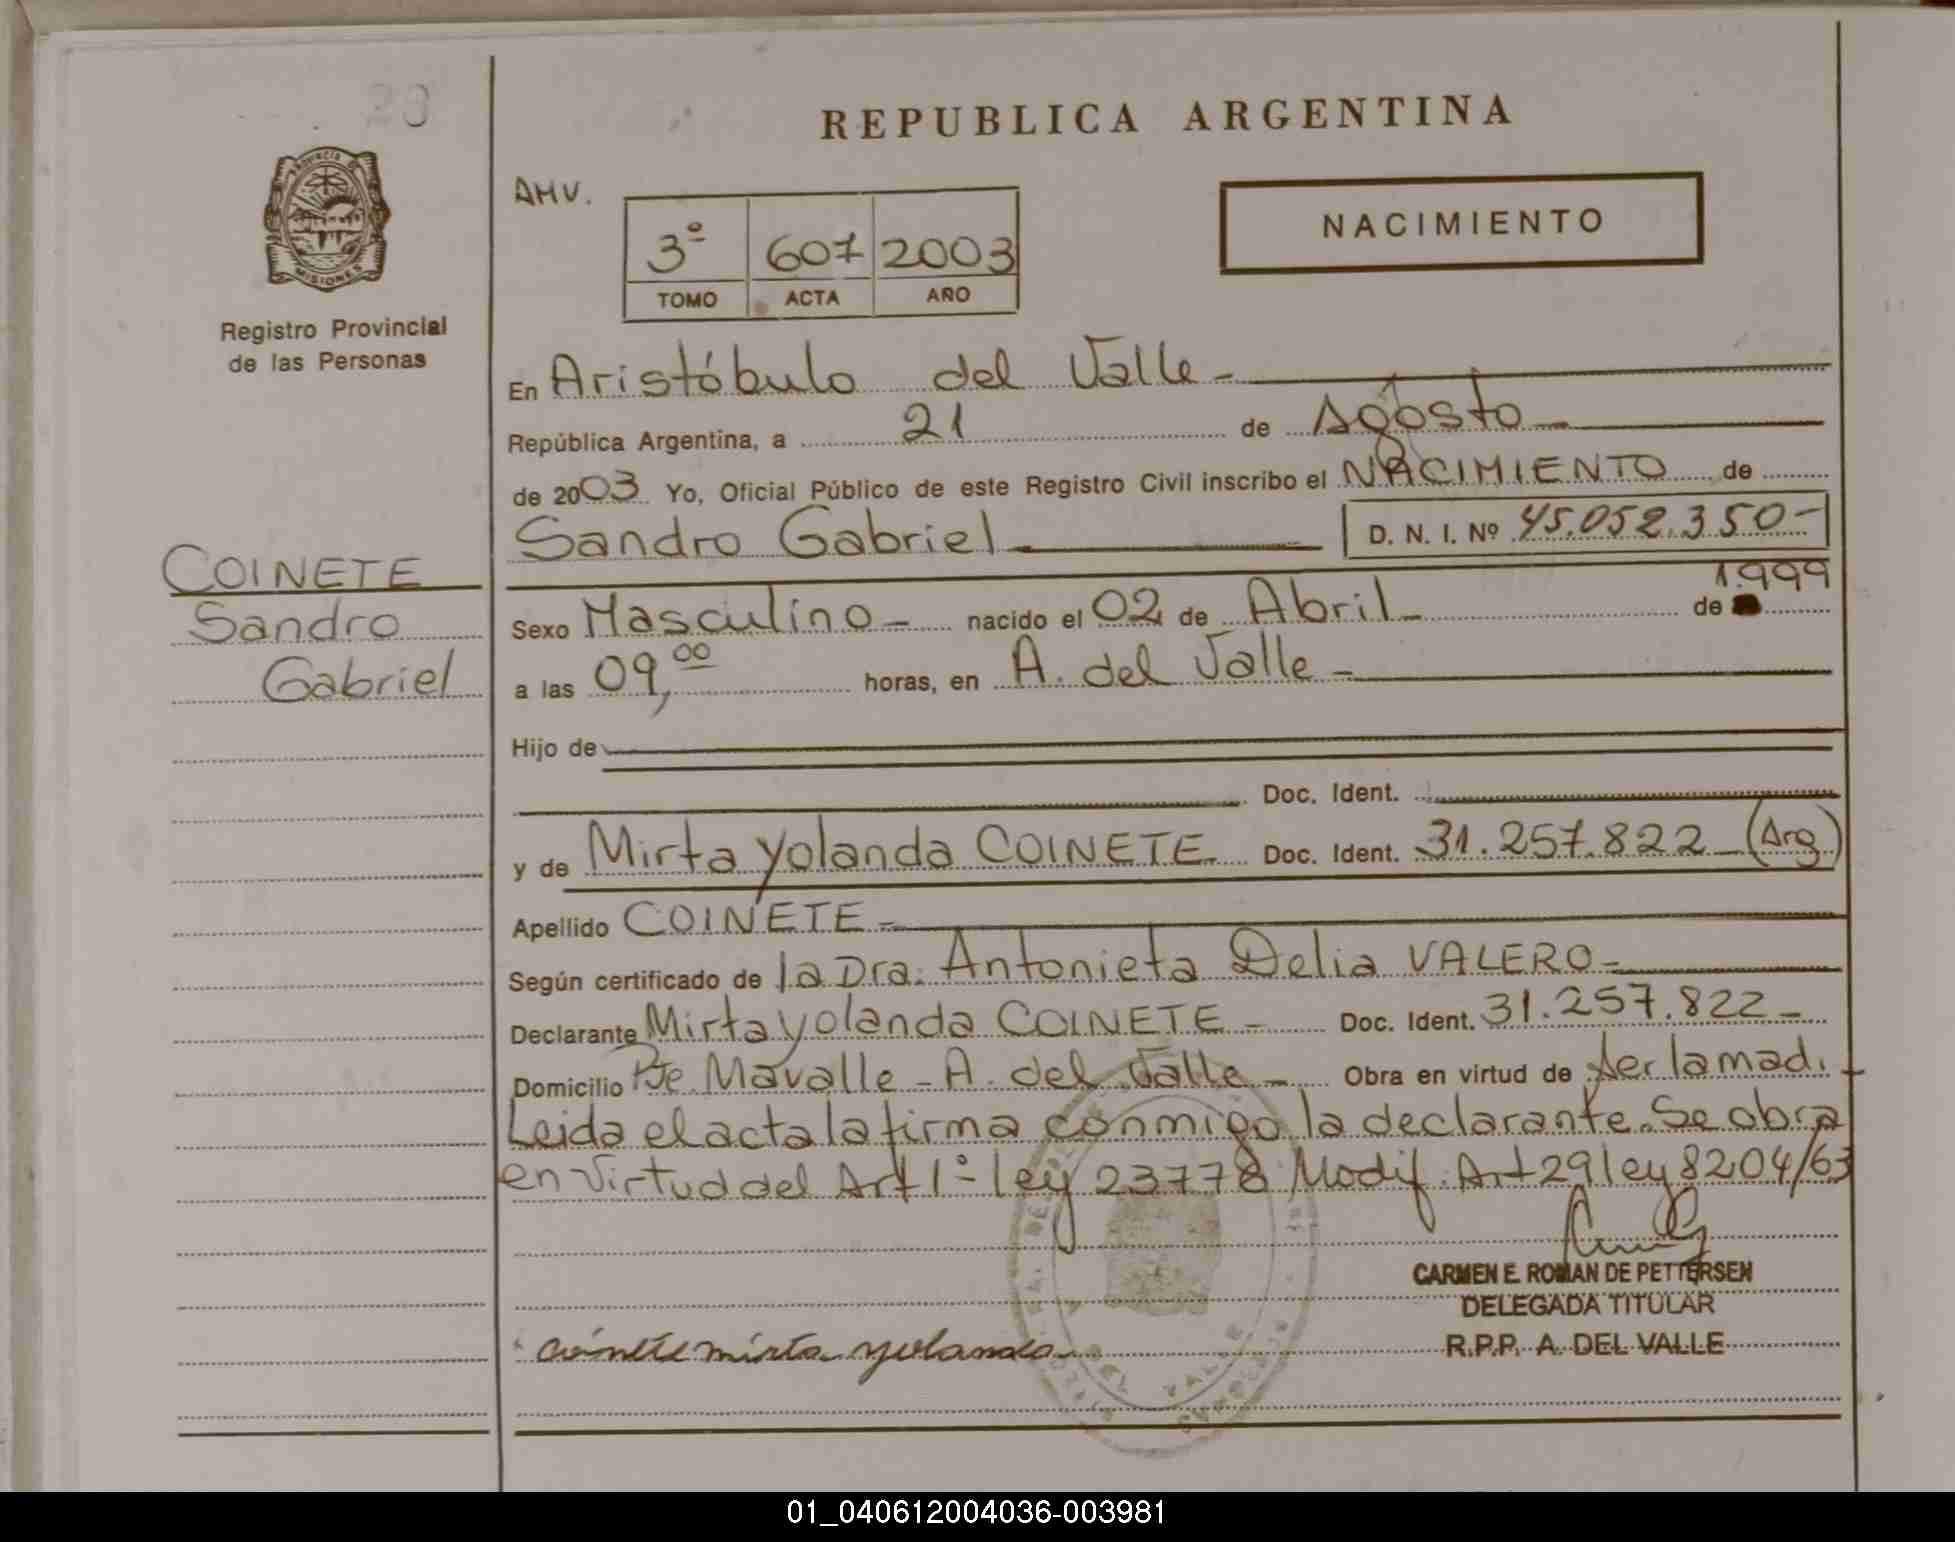 20
REPUBLICA ARGENTINA
PROVINCIA DE
MISIONES
Registro Provincial
de las Personas
AMV.
3º 607 2003
TOMO ACTA AÑO
NACIMIENTO
En Aristóbulo del Valle -
República Argentina, a 21 de Agosto
de 2003 Yo, Oficial Público de este Registro Civil inscribo el NACIMIENTO de
Sandro Gabriel D. N. I. Nº 45.052.350-
COINETE
Sandro
Gabriel
1.999
Sexo Masculino - nacido el 02 de Abril - de
a las 09,00 horas, en A. del Valle -
Hijo de
Doc. Ident.
y de Mirta Yolanda COINETE Doc. Ident. 31.257.822 - (Arg)
Apellido COINETE -
Según certificado de la Dra. Antonieta Delia VALERO -
Declarante Mirta Yolanda COINETE - Doc. Ident. 31.257.822 -
Domicilio Pje. Mavalle - A. del Valle - Obra en virtud de ser la mad.
Leida el acta la firma conmigo la declarante. Se obra
en virtud del Art 1º ley 23778 Modif. Art 29 ley 8204/63
CARMEN E. ROMAN DE PETTERSEN
DELEGADA TITULAR
R.P.P. A. DEL VALLE
coinete mirta yolanda
01_040612004036-003981